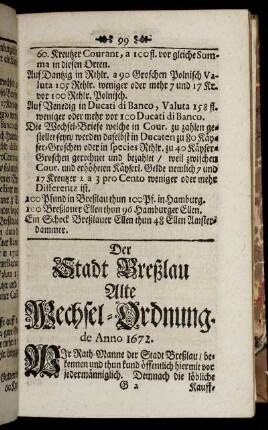 99
60. Kreutzer Courant, a 100 fl. vor gleiche Sum-
ma in diesen Orten.
Auf Dantzig in Rthlr. a 90 Groschen Polnisch Va-
luta 105 Rthlr. weniger oder mehr 7 und 17 Kr.
vor 100 Rthlr. Polnisch.
Auf Venedig in Ducati di Banco, Valuta 158 fl.
weniger oder mehr vor 100 Ducati di Banco.
Die Wechsel-Briefe welche in Cour. zu zahlen ge-
stellet seyn/ werden daselbst in Ducaten zu 80 Käy-
ser-Groschen oder in species Rthlr. zu 40 Käyser-
Groschen gerechnet und bezahlet / weil zwischen
Cour. und erhöheten Käyserl. Gelde nemlich 7 und
17 Kreutzer 2 a 3 pro Cento weniger oder mehr
Differentz ist.
100 Pfund in Breßlau thun 100 Pf. in Hamburg.
100 Breßlauer Ellen thun 96 Hamburger Ellen.
Ein Schock Breßlauer Ellen thun 48 Ellen Amster-
dammer.
Der
Stadt Breßlau
Alte
Wechsel-Ordnung.
de Anno 1672.
WIr Rath-Manne der Stadt Breßlau/ be-
kennen und thun kund öffentlich hiermit vor
jedermänniglich. Demnach die löbliche
G 2 Kauff-